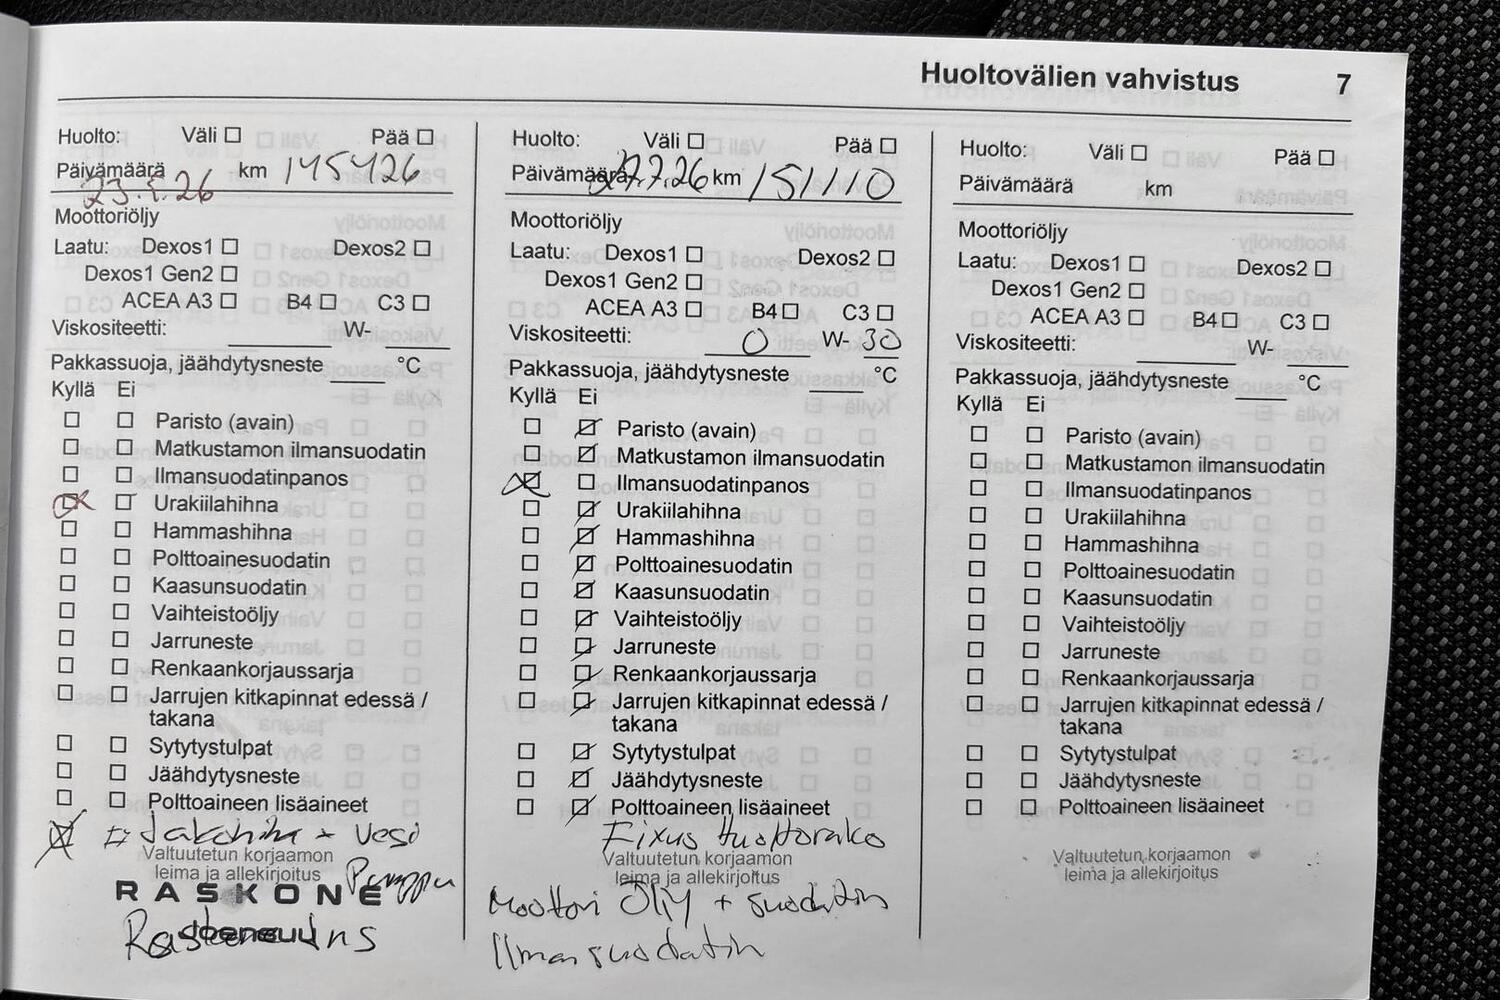 Huoltovälien vahvistus 7
Huolto: Väli ☐ Pää ☐
Päivämäärä 23.5.26 km 145426
Moottoriöljy
Laatu: Dexos1 ☐ Dexos2 ☐
Dexos1 Gen2 ☐
ACEA A3 ☐ B4 ☐ C3 ☐
Viskositeetti: W-
Pakkassuoja, jäähdytysneste °C
Kyllä Ei
Paristo (avain)
Matkustamon ilmansuodatin
Ilmansuodatinpanos
Urakiilahihna
Hammashihna
Polttoainesuodatin
Kaasunsuodatin
Vaihteistoöljy
Jarruneste
Renkaankorjaussarja
Jarrujen kitkapinnat edessä /
takana
Sytytystulpat
Jäähdytysneste
Polttoaineen lisäaineet
Jakohihna + Vesi
Valtuutetun korjaamon
leima ja allekirjoitus
Pumppu
RASKONE
Joensuu
Huolto: Väli ☐ Pää ☐
Päivämäärä 27.7.26 km 151110
Moottoriöljy
Laatu: Dexos1 ☐ Dexos2 ☐
Dexos1 Gen2 ☐
ACEA A3 ☐ B4 ☐ C3 ☐
Viskositeetti: 0 W- 30
Pakkassuoja, jäähdytysneste °C
Kyllä Ei
Paristo (avain)
Matkustamon ilmansuodatin
Ilmansuodatinpanos
Urakiilahihna
Hammashihna
Polttoainesuodatin
Kaasunsuodatin
Vaihteistoöljy
Jarruneste
Renkaankorjaussarja
Jarrujen kitkapinnat edessä /
takana
Sytytystulpat
Jäähdytysneste
Polttoaineen lisäaineet
Fixus Huoltorako
Valtuutetun korjaamon
leima ja allekirjoitus
Moottori Öljy + suodatin
Ilmansuodatin
Huolto: Väli ☐ Pää ☐
Päivämäärä km
Moottoriöljy
Laatu: Dexos1 ☐ Dexos2 ☐
Dexos1 Gen2 ☐
ACEA A3 ☐ B4 ☐ C3 ☐
Viskositeetti: W-
Pakkassuoja, jäähdytysneste °C
Kyllä Ei
Paristo (avain)
Matkustamon ilmansuodatin
Ilmansuodatinpanos
Urakiilahihna
Hammashihna
Polttoainesuodatin
Kaasunsuodatin
Vaihteistoöljy
Jarruneste
Renkaankorjaussarja
Jarrujen kitkapinnat edessä /
takana
Sytytystulpat
Jäähdytysneste
Polttoaineen lisäaineet
Valtuutetun korjaamon
leima ja allekirjoitus